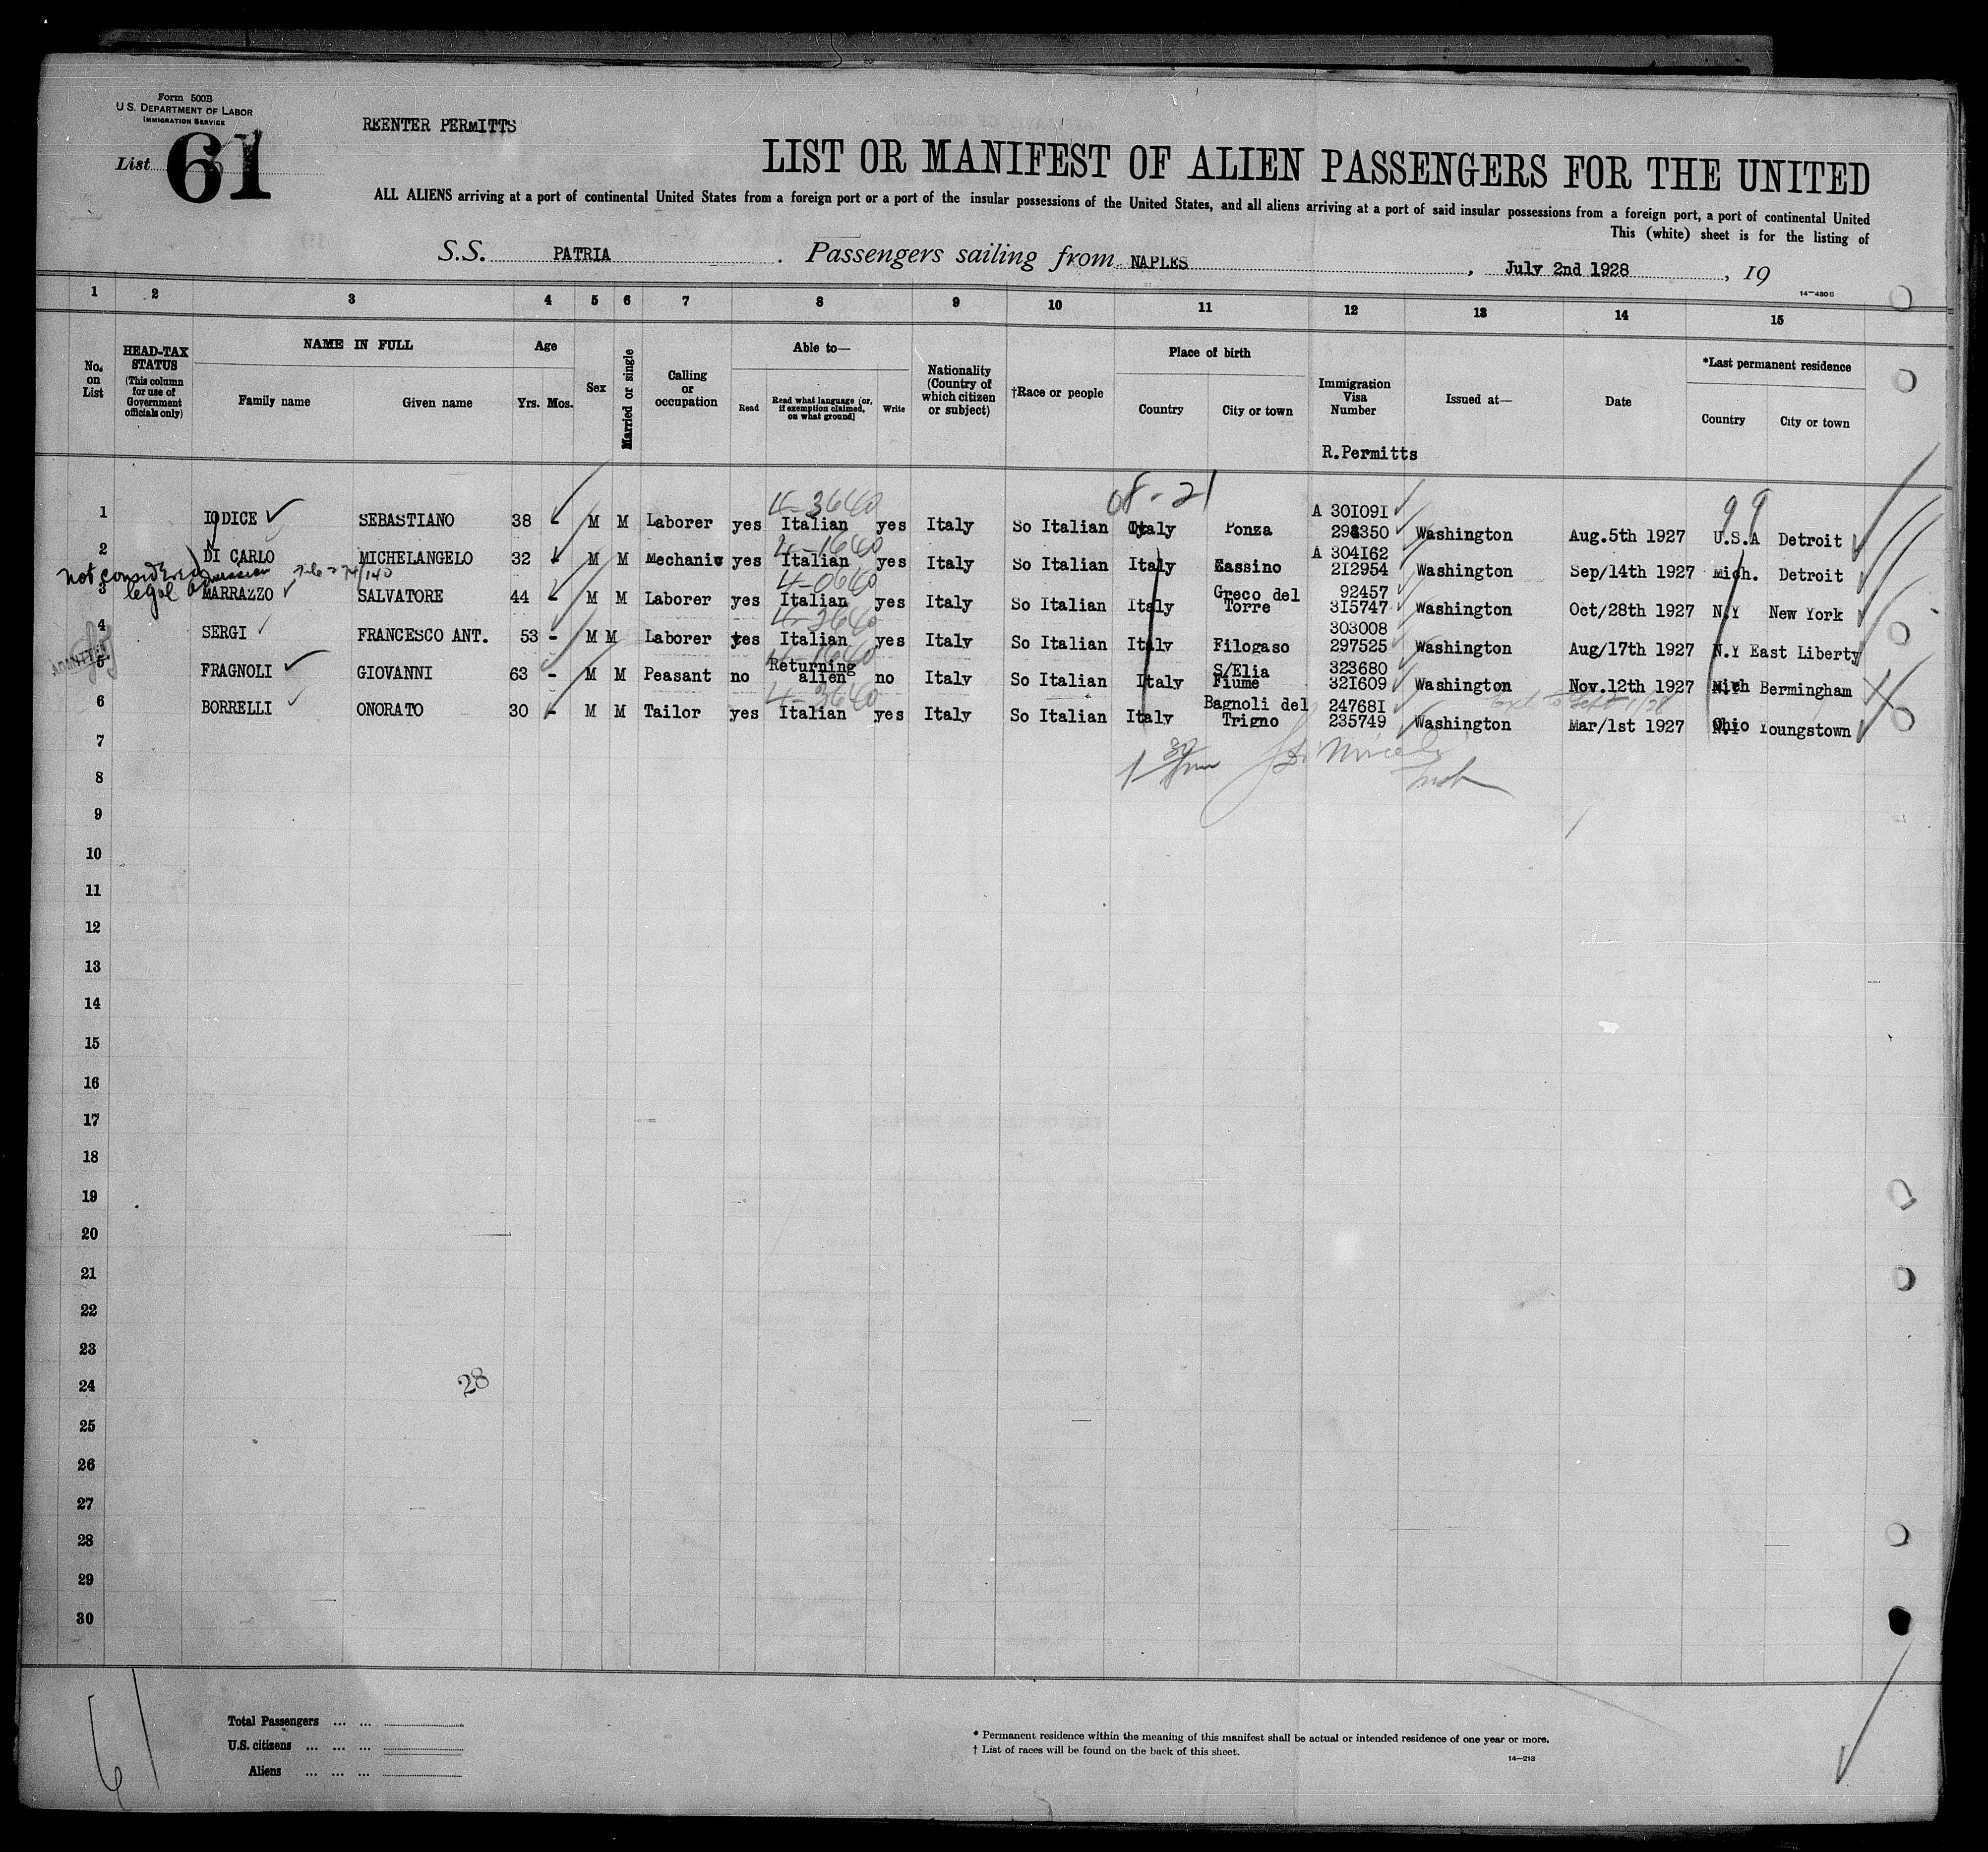 Form 500B
U.S. DEPARTMENT OF LABOR
IMMIGRATION SERVICE
REENTER PERMITTS
List 61
LIST OR MANIFEST OF ALIEN PASSENGERS FOR THE UNITED
ALL ALIENS arriving at a port of continental United States from a foreign port or a port of the insular possessions of the United States, and all aliens arriving at a port of said insular possessions from a foreign port, a port of continental United
This (white) sheet is for the listing of
S.S. PATRIA. Passengers sailing from NAPLES, July 2nd 1928, 19
14-430B
1 2 3 4 5 6 7 8 9 10 11 12 13 14 15
No. on List
HEAD-TAX STATUS (This column for use of Government officials only)
NAME IN FULL
Family name Given name
Age
Yrs. Mos.
Sex
Married or single
Calling or occupation
Able to—
Read
Read what language [or, if exemption claimed, on what ground]
Write
Nationality (Country of which citizen or subject)
†Race or people
Place of birth
Country City or town
Immigration Visa Number
R.Permitts
Issued at—
Date
*Last permanent residence
Country City or town
4-3640 08-21 99
1 IODICE SEBASTIANO 38 - M M Laborer yes Italian yes Italy So Italian Italy Ponza A 301091 294350 Washington Aug.5th 1927 U.S.A Detroit
4-1640
2 DI CARLO MICHELANGELO 32 - M M Mechanic yes Italian yes Italy So Italian Italy Cassino A 304162 212954 Washington Sep/14th 1927 Mich. Detroit
not considered legal admission
4-0640
3 MARRAZZO SALVATORE 44 - M M Laborer yes Italian yes Italy So Italian Italy Greco del Torre 92457 315747 Washington Oct/28th 1927 N.Y New York
4-3640
4 SERGI FRANCESCO ANT. 53 - M M Laborer yes Italian yes Italy So Italian Italy Filogaso 303008 297525 Washington Aug/17th 1927 N.Y East Liberty
ADMITTED
4-1640
5 FRAGNOLI GIOVANNI 63 - M M Peasant no Returning alien no Italy So Italian Italy S/Elia Fiume 323680 321609 Washington Nov.12th 1927 Mich Bermingham
4-3640
6 BORRELLI ONORATO 30 - M M Tailor yes Italian yes Italy So Italian Italy Bagnoli del Trigno 247681 235749 Washington Mar/1st 1927 Ohio Youngstown
7
8
9
10
11
12
13
14
15
16
17
18
19
20
21
22
23
24
28
25
26
27
28
29
30
61
Total Passengers ... ...
U.S. citizens ... ... ...
Aliens ... ... ...
* Permanent residence within the meaning of this manifest shall be actual or intended residence of one year or more.
† List of races will be found on the back of this sheet.
14-213